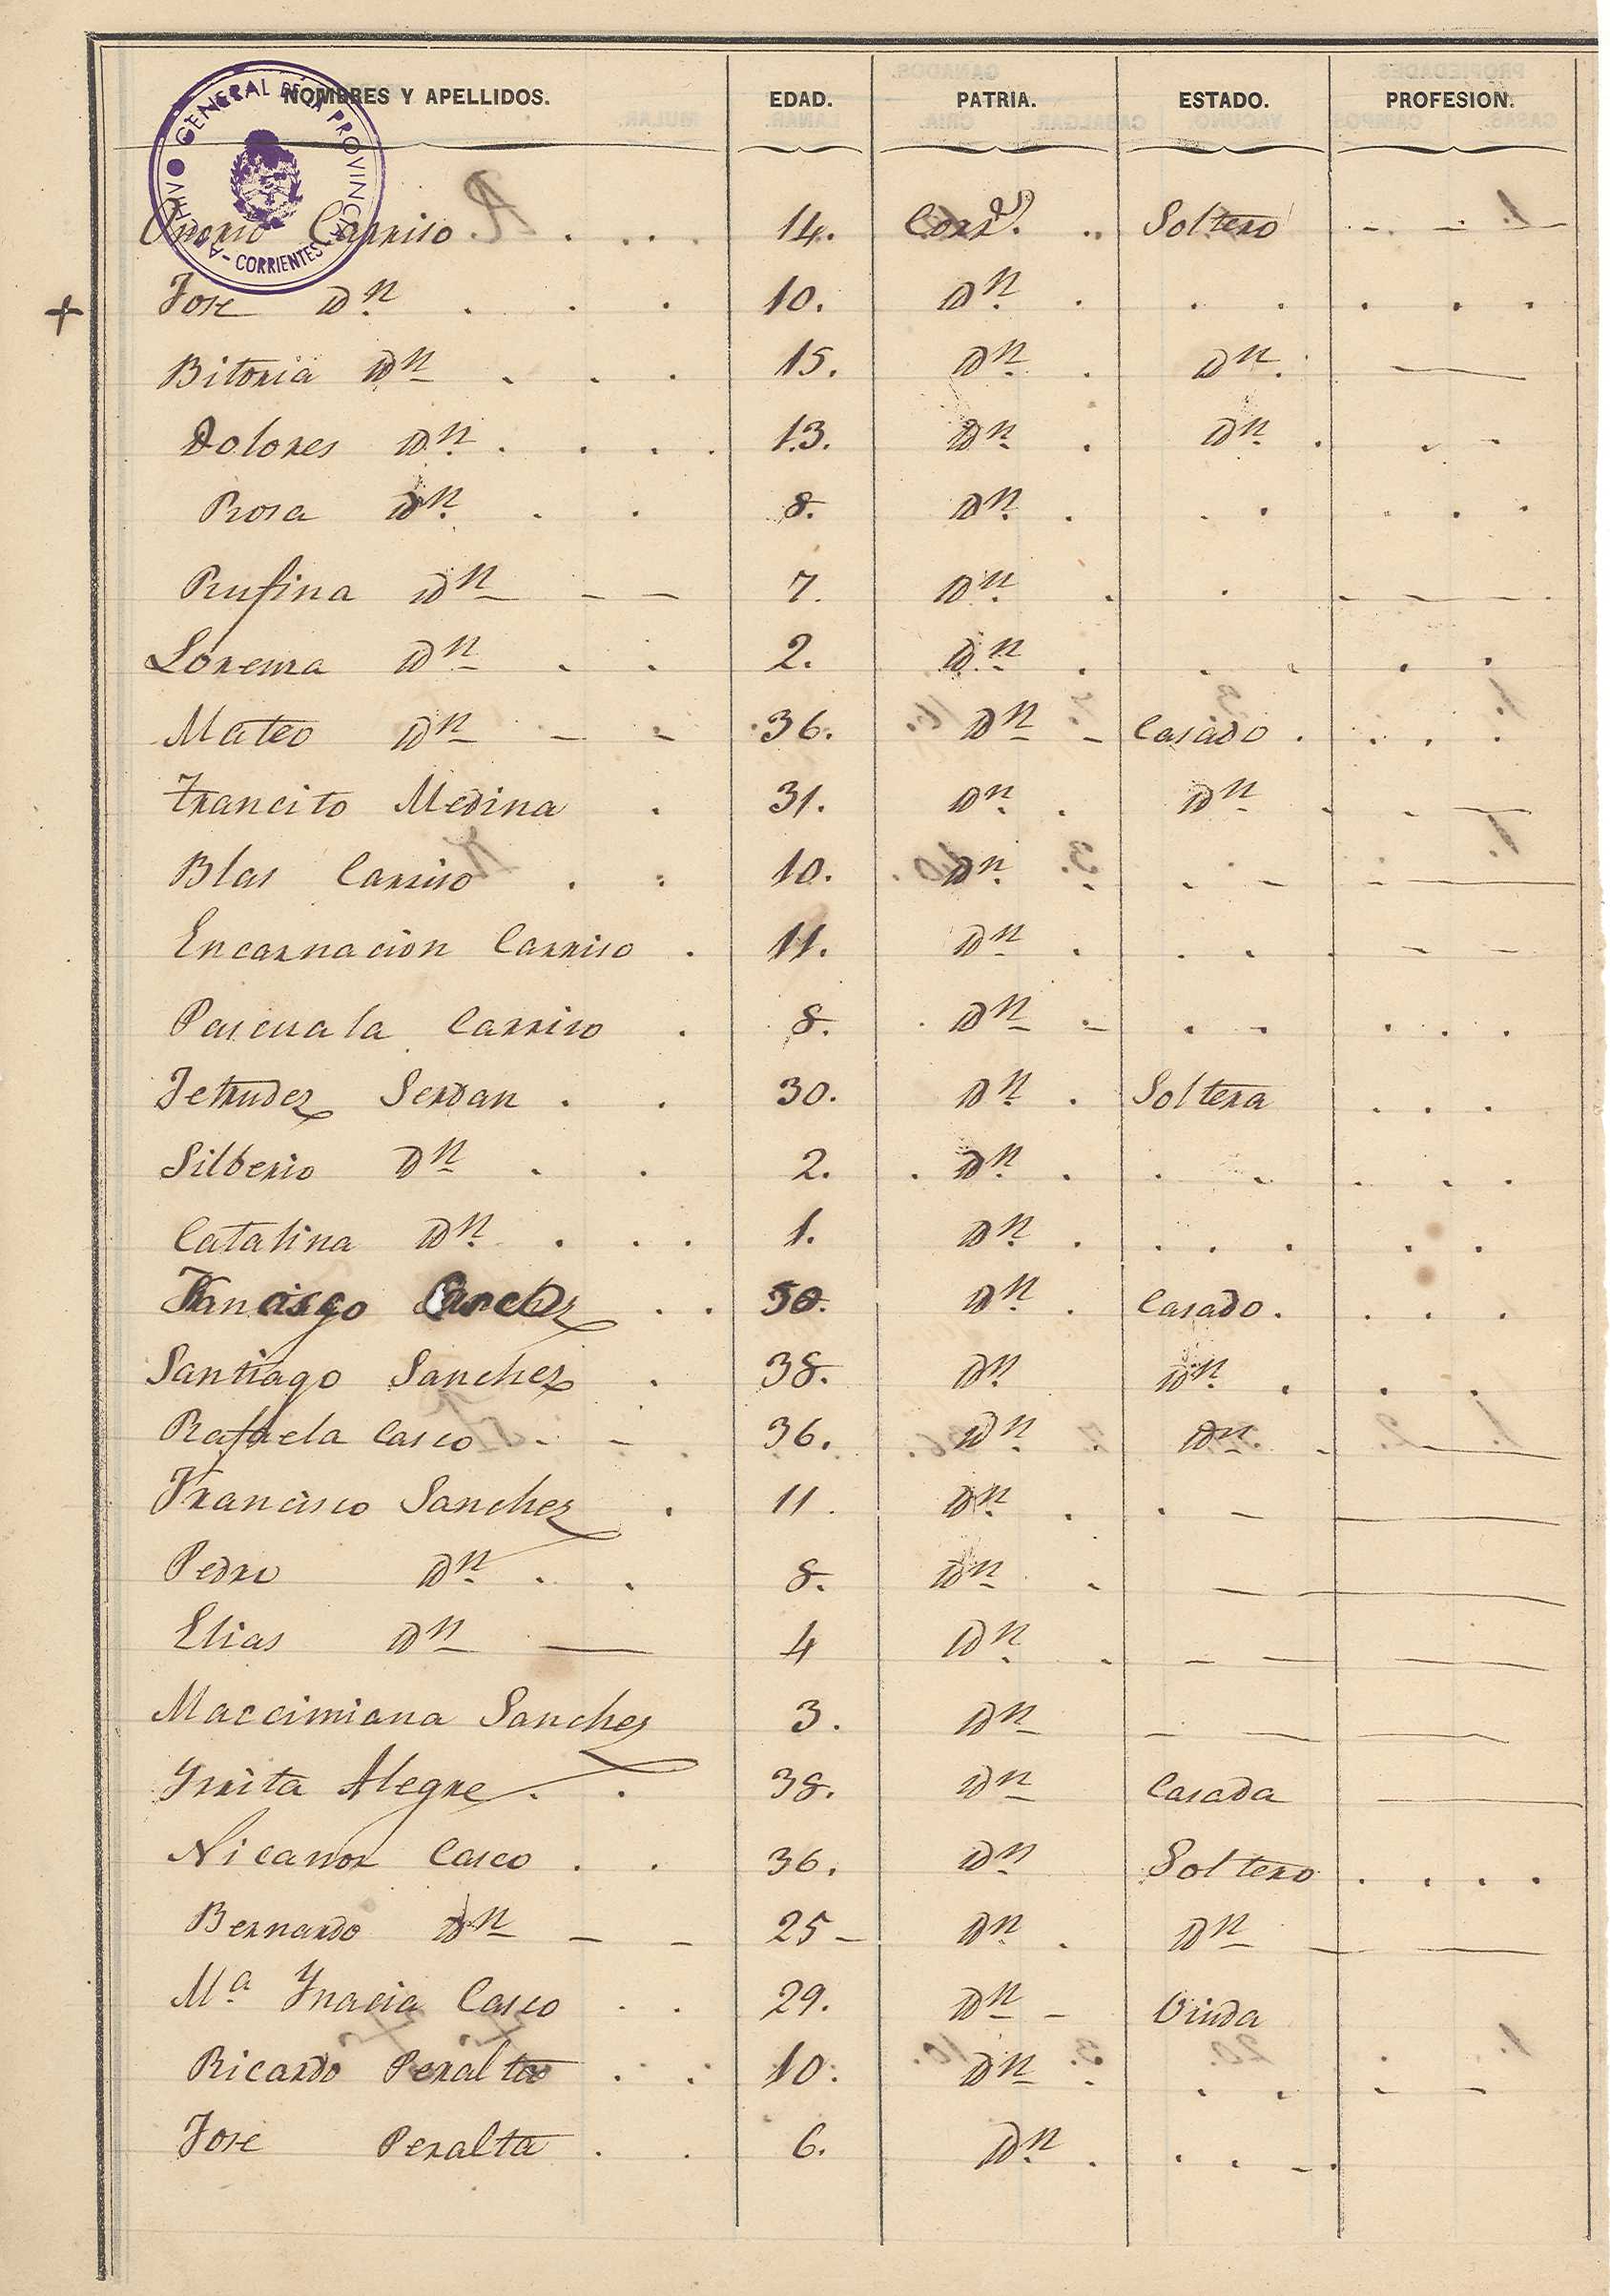 NOMBRES Y APELLIDOS. EDAD. PATRIA. ESTADO. PROFESION.
ARCHIVO GENERAL DE LA PROVINCIA - CORRIENTES -
Onorio Carriso 14. Corr.s Soltero
Jose Dn. 10. Dn.
Bitoria Dn 15. Dn. Dn.
Dolores Dn. 13. Dn. Dn.
Rosa Dn. 8. Dn.
Rufina Dn 7. Dn.
Lorensa Dn 2. Dn.
Mateo Dn 36. Dn Casado.
Trancito Medina 31. Dn. Dn
Blas Carriso 10. Dn.
Encarnacion Carriso 11. Dn
Pascuala Carriso 8. Dn
Jetrudez Serdan 30. Dn. Soltera
Silberio Dn 2. Dn.
Catalina Dn. 1. Dn.
Francisco Sanchez 50. Dn. Casado.
Santiago Sanchez 38. Dn. Dn.
Rafaela Casco 36. Dn. Dn
Francisco Sanchez 11. Dn.
Pedro Dn. 8. Dn.
Elias Dn 4 Dn.
Maccimiana Sanchez 3. Dn
Yrrita Alegre 38. Dn Casada
Nicanor Casco 36. Dn Soltero
Bernardo Dn 25 Dn. Dn
Ma. Ynacia Casco 29. Dn Viuda
Ricardo Peralta 10. Dn
Jose Peralta 6. Dn.